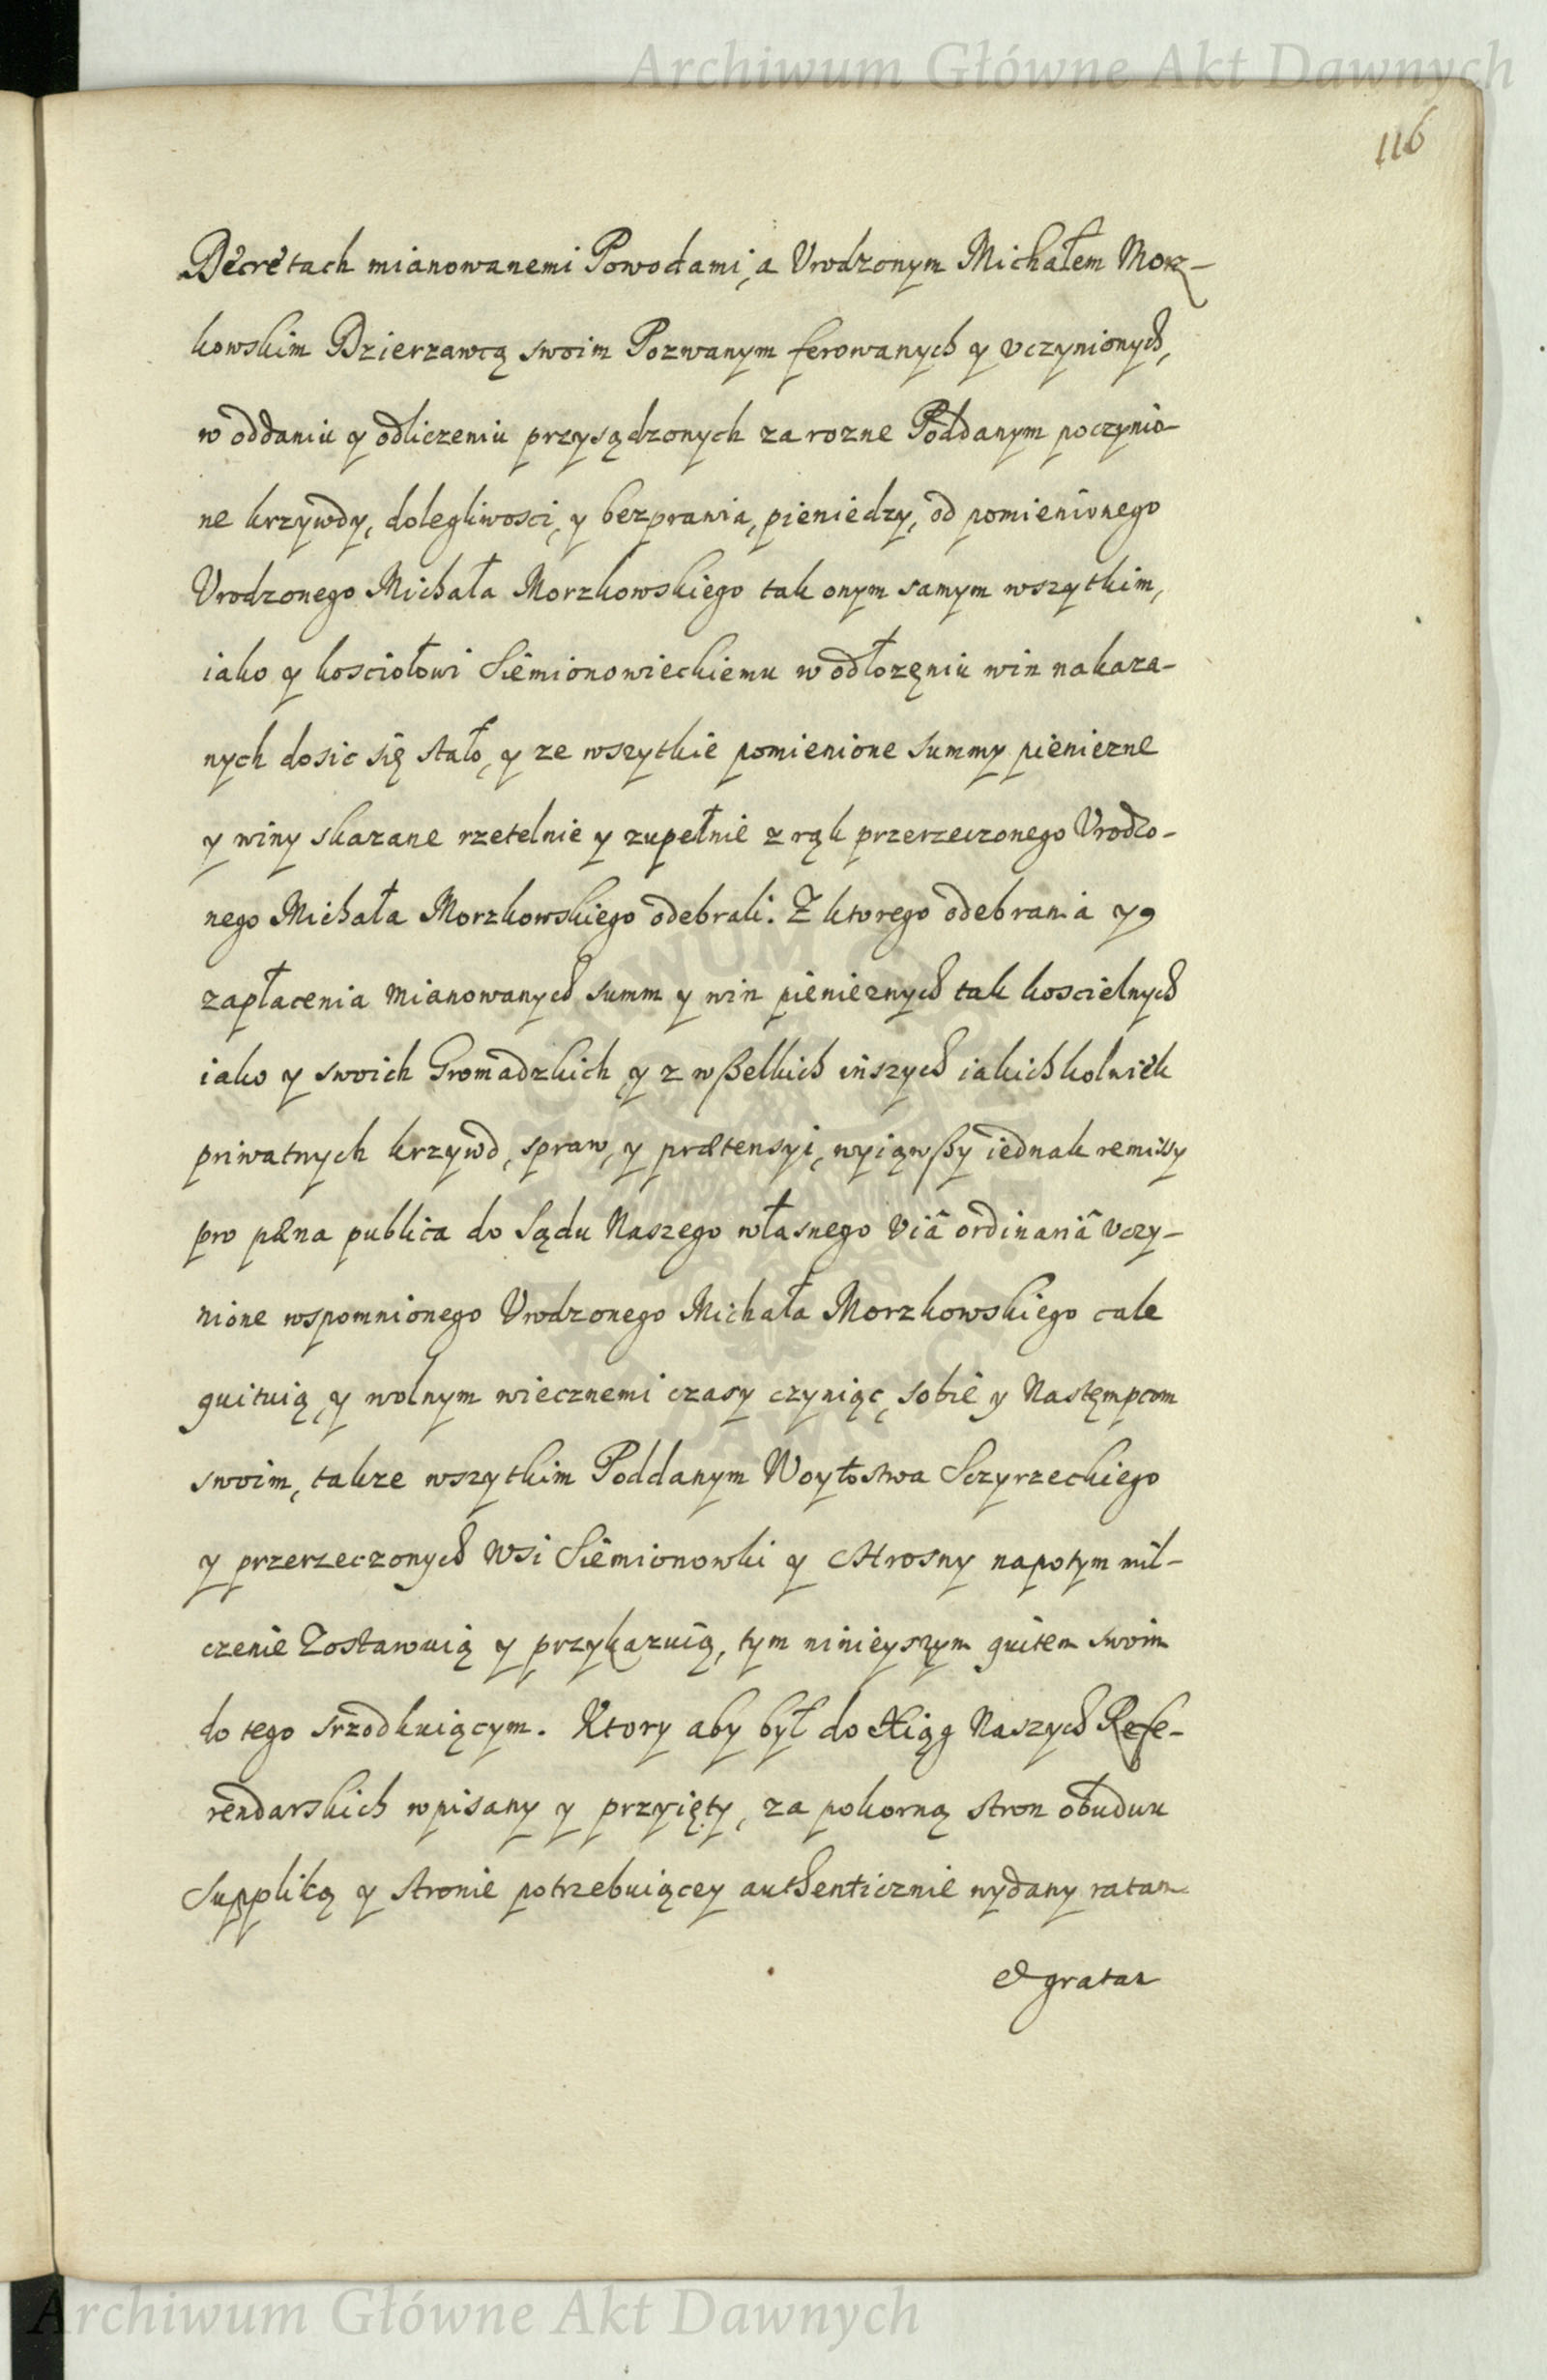 Archiwum Główne Akt Dawnych
116
Decretach mianowanemi Powodami, a Vrodzonym Michałem Morz-
kowskim Dzierzawcą swoim Pozwanym ferowanych y vczynionych,
w oddaniu y odliczeniu przysądzonych za rozne Poddanym poczynio-
ne krzywdy, dolegliwosci, y bezprawia, pieniedzy, od pomienionego
Vrodzonego Michała Morzkowskiego tak onym samym wszytkim,
iako y kosciołowi Siemionowieckiemu w odłozęniu win nakaza-
nych dosic się stało, y ze wszytkie pomienione summy pieniezne
y winy skazane rzetelnie y zupełnie z rąk przerzeczonego Vrodzo-
nego Michała Morzkowskiego odebrali. Z ktorego odebrania y
zapłacenia mianowanych summ y win pienieznych tak koscielnych
iako y swoich Gromadzkich y z wßelkich inszych iakichkolwiek
priwatnych krzywd, spraw, y prætensyi, wyiąwßy iednak remissy
pro pæna publica do Sądu Naszego własnego viâ ordinariâ vczy-
nione wspomnionego Vrodzonego Michała Morzkowskiego cale
quituią, y wolnym wiecznemi czasy czyniąc, sobie y Nastęmpcom
swoim, takze wszytkim Poddanym Woytostwa Sczyrzeckiego
y przerzeczonych Wsi Siemionowki y Chrosny napotym mil-
czenie Zostawuią y przykazuią, tym ninieyszym quitem swoim
do tego srzodkuiącym. Ktory aby był do Xiąg Naszych Refe-
rendarskich wpisany y przyięty, za pokorną stron obudwu
Suppliką y stronie potrzebuiącey authenticznie wydany ratam
et gratam
Archiwum Główne Akt Dawnych